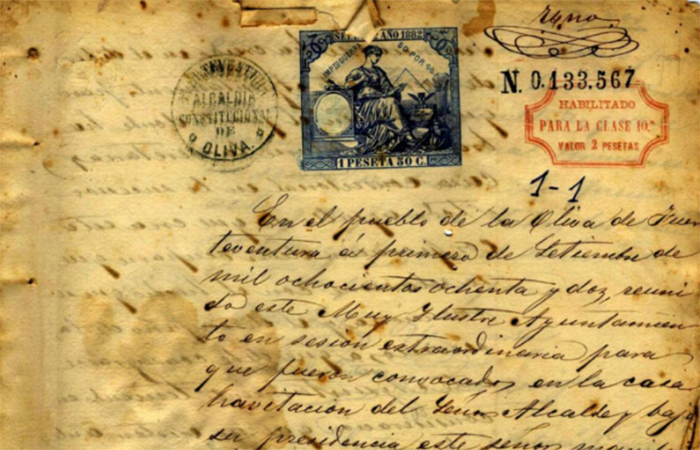 SELLO 10º AÑO 1882
1 PESETA 50 C.
ALCALDIA
CONSTITUCIONAL
DE
OLIVA.
N. 0.133.567
HABILITADO
PARA LA CLASE 10.ª
VALOR 2 PESETAS
1-1
En el pueblo de la Oliva de Fuer
teventura á primero de Setiembre de
mil ochocientos ochenta y dos, reuni
do este Muy Ilustre Ayuntamien
to en sesión extraordinaria para
que fueron convocados, en la casa
havitación del Señor Alcalde y bajo
su presidencia este señor